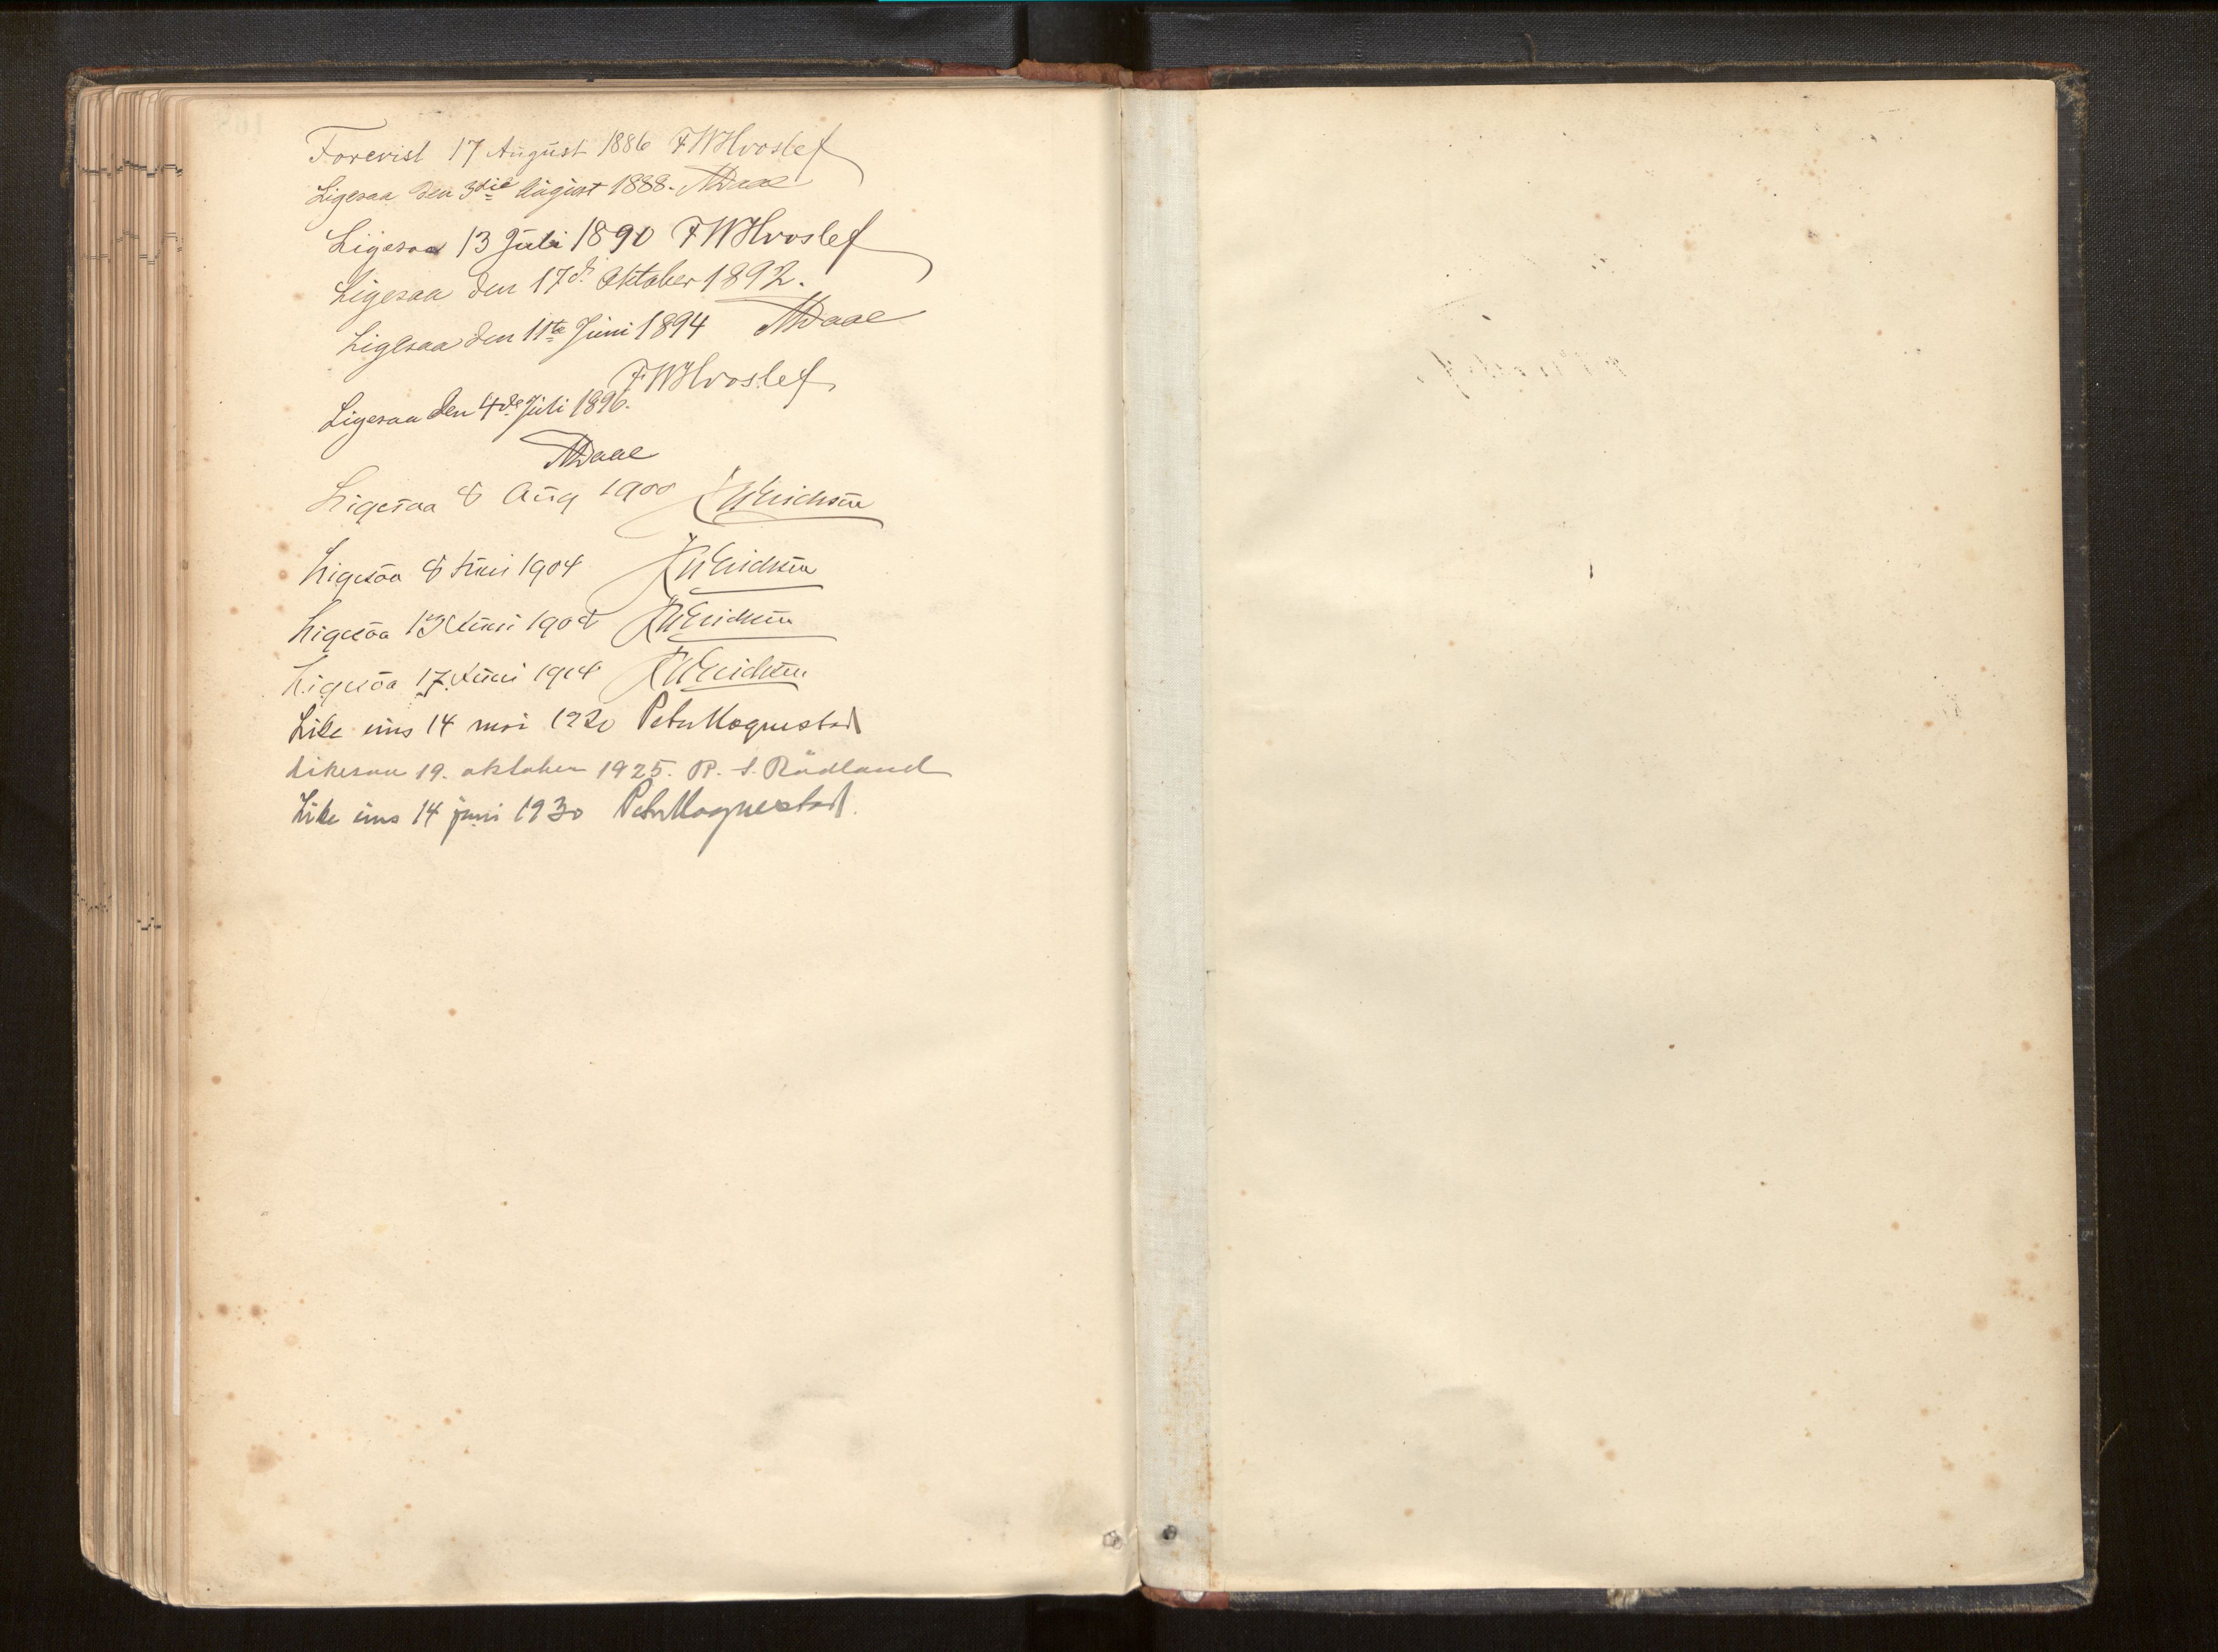 Forevist 17 August 1886 FWHvoslef
Ligesaa den 3die August 1888. Daae
Ligesaa 13 Juli 1890 FWHvoslef
Ligesaa den 17de Oktober 1892.
Ligesaa den 11te Juni 1894 Daae
FWHvoslef
Ligesaa den 4de Juli 1896.
Daae
Ligesaa 8 Aug 1900 Erichsen
Ligesaa 8 Juni 1904 Erichsen
Ligesaa Juni Erichsen
Ligesaa 17 Juni 1914 Erichsen
Like eins 14 mai 1920 Peter Hognestad
Likesaa 19. oktober 1925. P. S. Rödland
Like eins 14 juni 1930 Peter Hognestad.